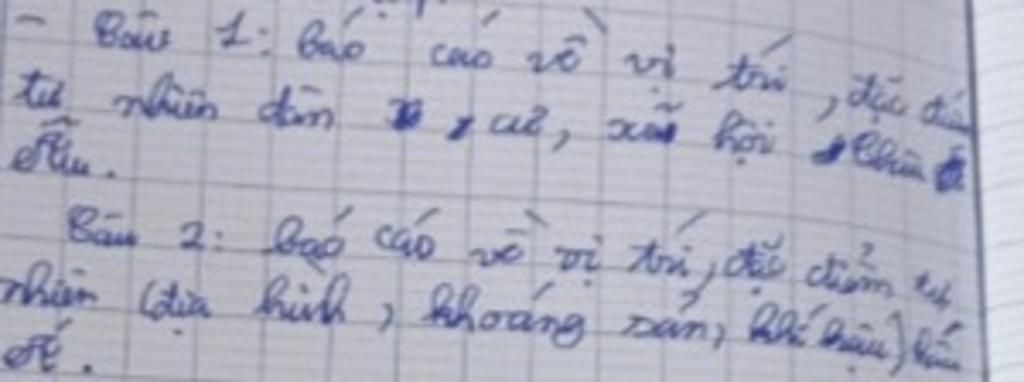 - Câu 1: báo cáo về vị trí, đặc điểm
tự nhiên dân cư, xã hội Châu
Âu.
Câu 2: báo cáo về vị trí, đặc điểm tự
nhiên (địa hình, khoáng sản, khí hậu) Châu
Á.